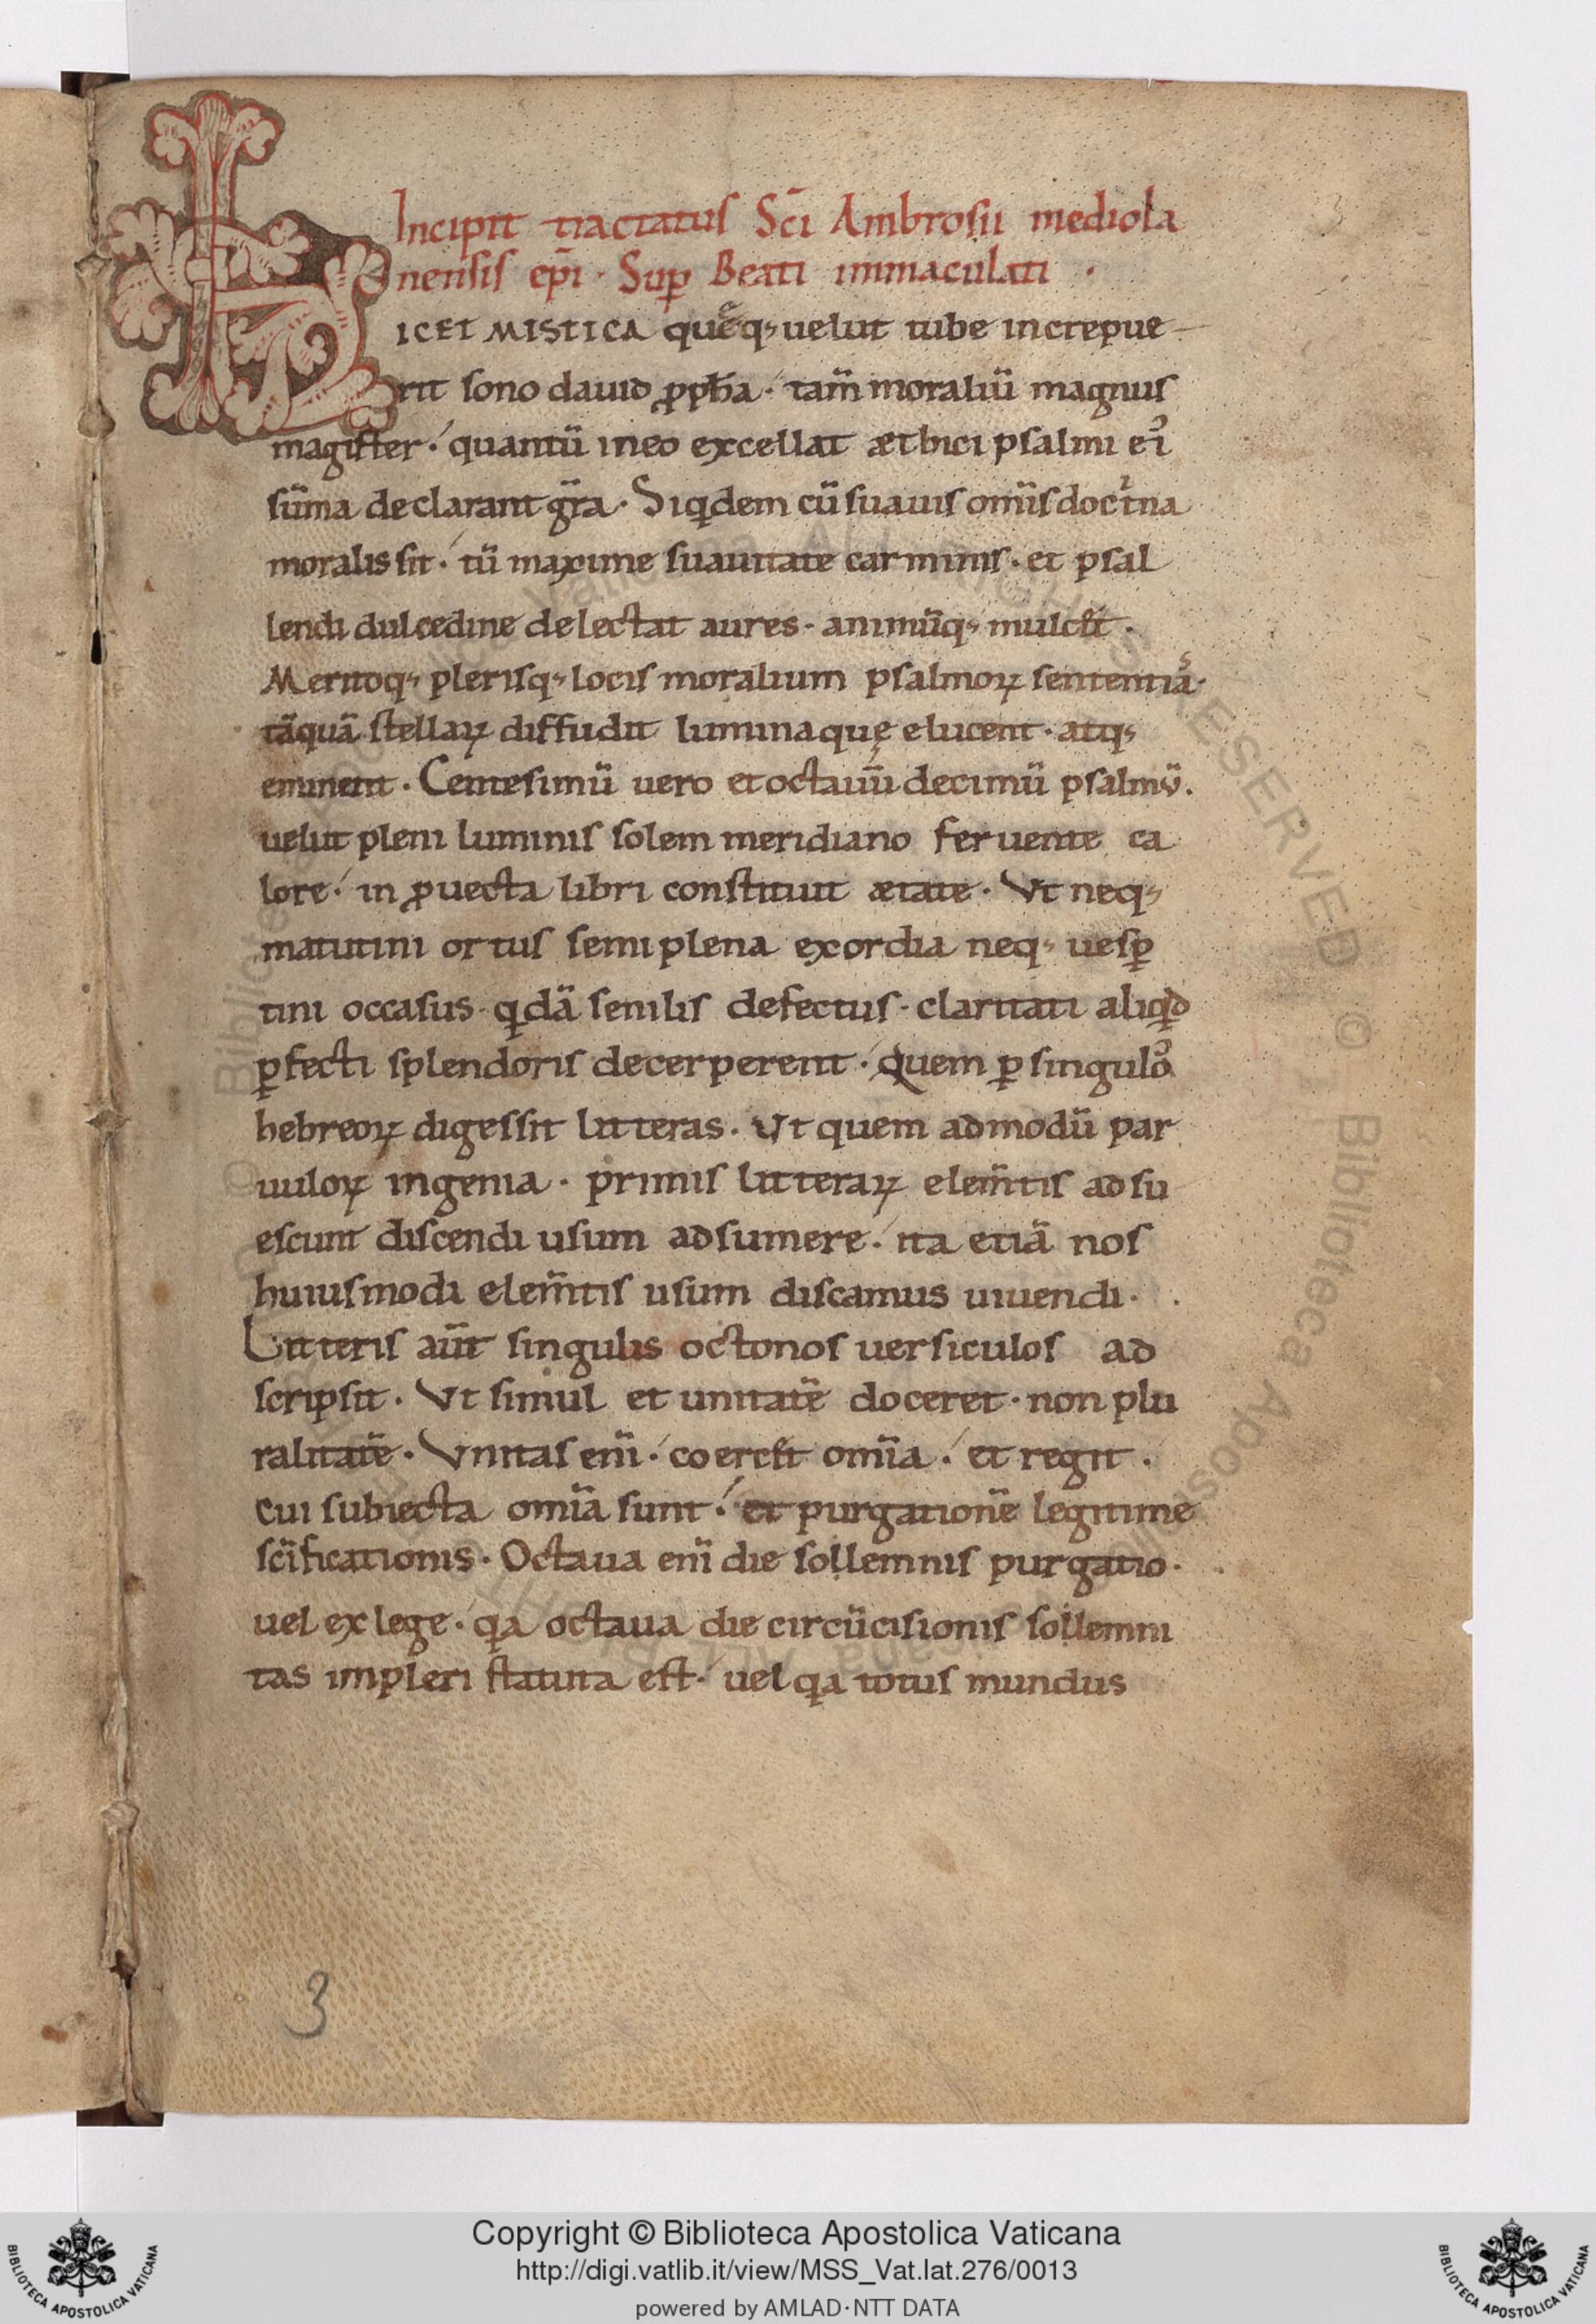 Incipit tractatus Sc̄i Ambrosii mediola
nensis ep̄i · Sup̱ Beati immaculati ·
LICET MISTICA quęq; uelut tube increpue
rit sono dauid ꝓph̄a · tam̄ moraliū magnus
magister · quantū in eo excellat æthici psalmi ei᷒
sūma declarant gr̄a · Siqͥdem cū suauis om̄is doctͥna
moralis sit · tū maxime suauitate carminis · et psal
lendi dulcedine delectat aures · animūq; mulcet ·
Meritoq; plerisq; locis moralium psalmoꝝ sententiaˢ ·
tāquā stellaꝝ diffudit lumina quę elucent · atq;
eminent · Centesimū uero et octauūdecimū psalmū ·
uelut pleni luminis solem meridiano feruente ca
lore · in ꝓuecta libri constituit ætate · Vt neq;
matutini ortus semiplena exordia neq; uesꝑ
tini occasus qͥdā senilis defectus · claritati aliqͥd
ꝑfecti splendoris decerperent · Quem ꝑ singulo᷒
hebreoꝝ digessit litteras · Vt quem admodū par
uuloꝝ ingenia · primis litteraꝝ elem̄tis adsu
escunt discendi usum adsumere · ita etiā nos
huiusmodi elem̄tis usum discamus uiuendi ·
Litteris aūt singulis octonos uersiculos ad
scripsit · Vt simul et unitatē doceret · non plu
ralitatē · Vnitas eni̅ · coercet om̄ia · et regit ·
cui subiecta om̄ia sunt · et purgationē legitime
sc̄ificationis · Octaua eni̅ die sollemnis purgatio ·
uel ex lege · qͥa octaua die circūcisionis sollemni
tas impleri statuta est · uel qͥa totus mundus
3
Copyright © Biblioteca Apostolica Vaticana
http://digi.vatlib.it/view/MSS_Vat.lat.276/0013
powered by AMLAD·NTT DATA
BIBLIOTECA APOSTOLICA VATICANA
BIBLIOTECA APOSTOLICA VATICANA